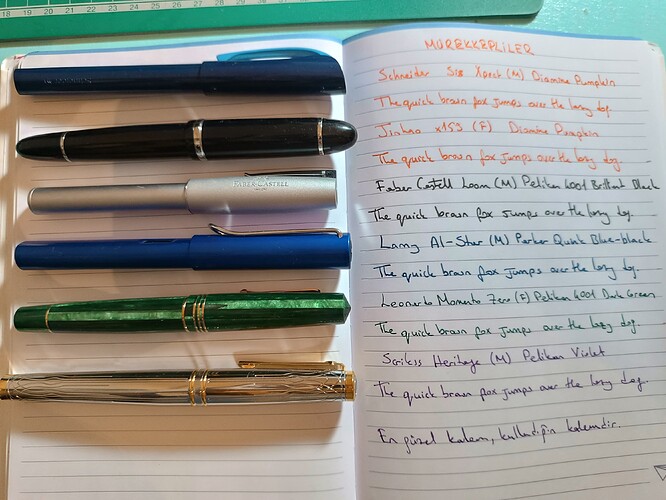 18 17 16 15 14 13 12 11 10 9 8 7 6 5 4 3 2 1
MÜREKKEPLİLER
Schneider Sis Xpect (M) Diamine Pumpkin
The quick brown fox jumps over the lazy dog.
Jinhao x159 (F) Diamine Pumpkin
The quick brown fox jumps over the lazy dog.
FABER-CASTELL
Faber Castell Loom (M) Pelikan 4001 Brilliant Black
The quick brown fox jumps over the lazy dog.
Lamy Al-Star (M) Parker Quink Blue-black
The quick brown fox jumps over the lazy dog.
Leonardo Momento Zero (F) Pelikan 4001 Dark Green
The quick brown fox jumps over the lazy dog.
Scrikss Heritage (M) Pelikan Violet
The quick brown fox jumps over the lazy dog.
En güzel kalem, kullandığın kalemdir.